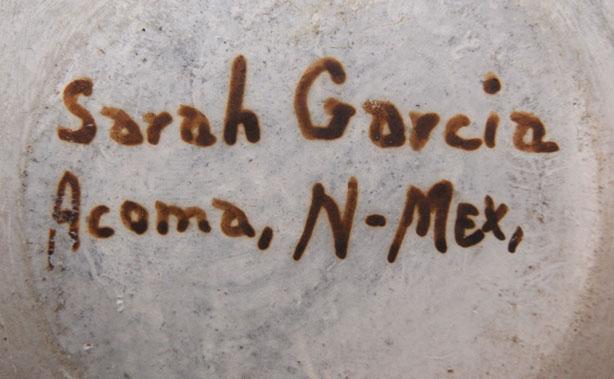 Sarah Garcia
Acoma, N-MEX,